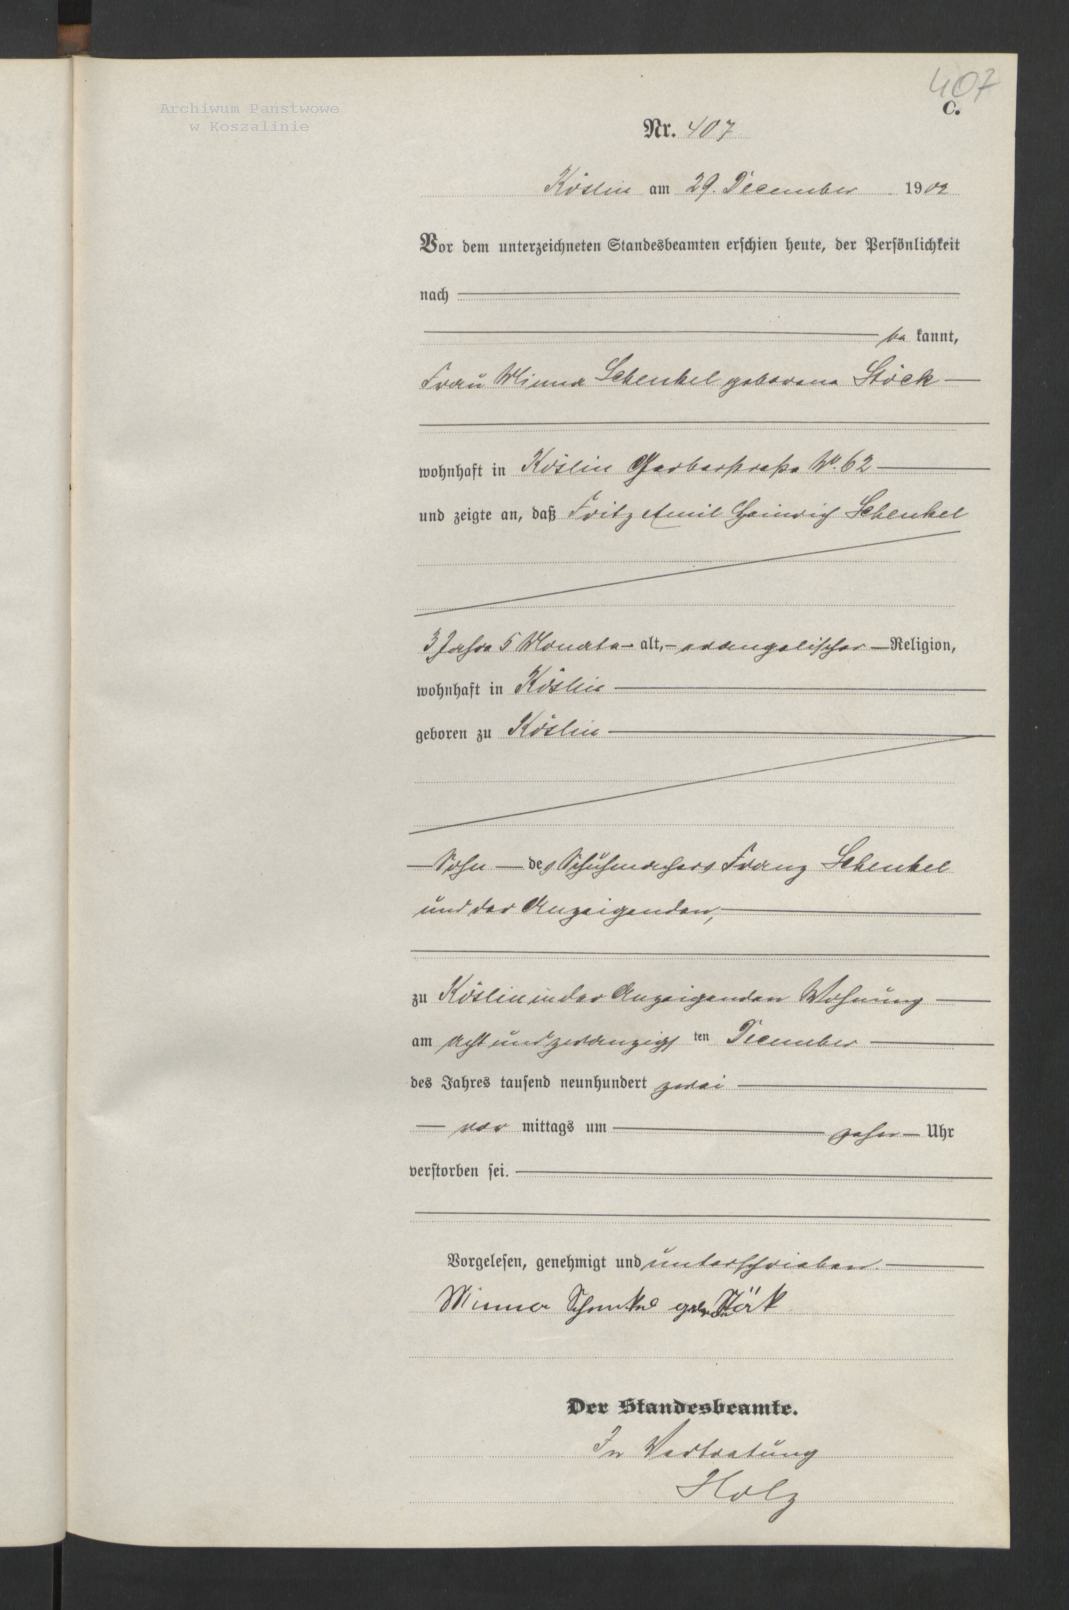 407
C.
Archiwum Państwowe
w Koszalinie
Nr. 407
Köslin am 29. December 1902
Vor dem unterzeichneten Standesbeamten erschien heute, der Persönlichkeit
nach
be kannt,
Frau Minna Schenkel geborene Stöck
wohnhaft in Köslin Gerberstraße No. 62
und zeigte an, daß Fritz Emil Heinrich Schenkel
3 Jahre 5 Monate alt, evangelischer Religion,
wohnhaft in Köslin
geboren zu Köslin
Sohn des Schuhmachers Franz Schenkel
und der Anzeigenden,
zu Köslin in der Anzeigenden Wohnung
am acht und zwanzigs ten December
des Jahres tausend neunhundert zwei
vor mittags um zehn Uhr
verstorben sei.
Vorgelesen, genehmigt und unterschrieben.
Minna Schenkel geborene Stöck
Der Standesbeamte.
In Vertretung
Holz